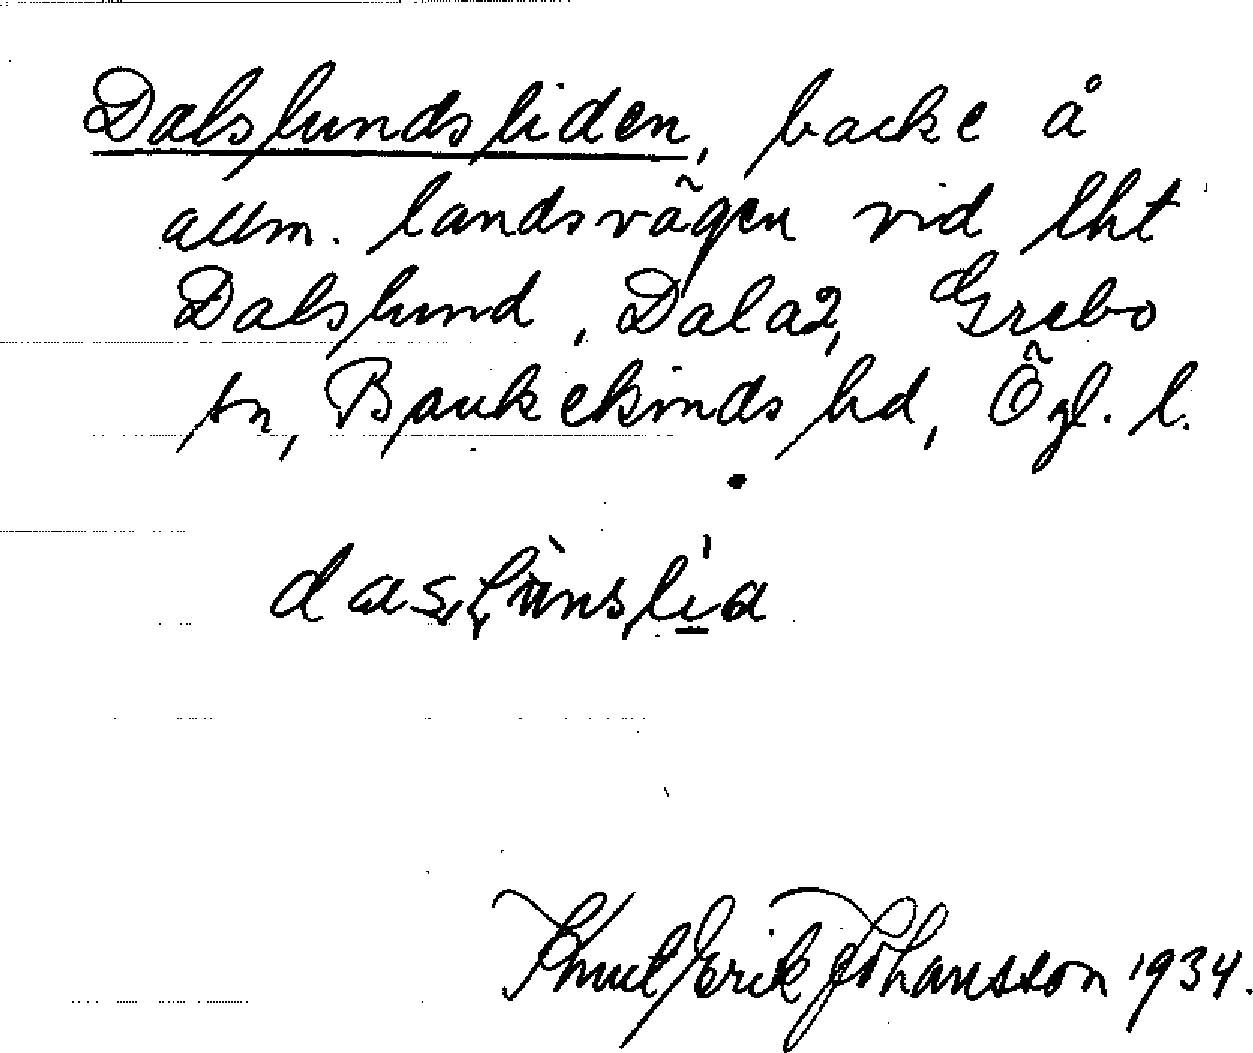 Dalslundsliden, backe å
allm. landsvägen vid lht
Dalslund, Dala 2, Grebo
sn, Bankekinds hd, Ögl. l.
Knut Erik Johansson 1934.